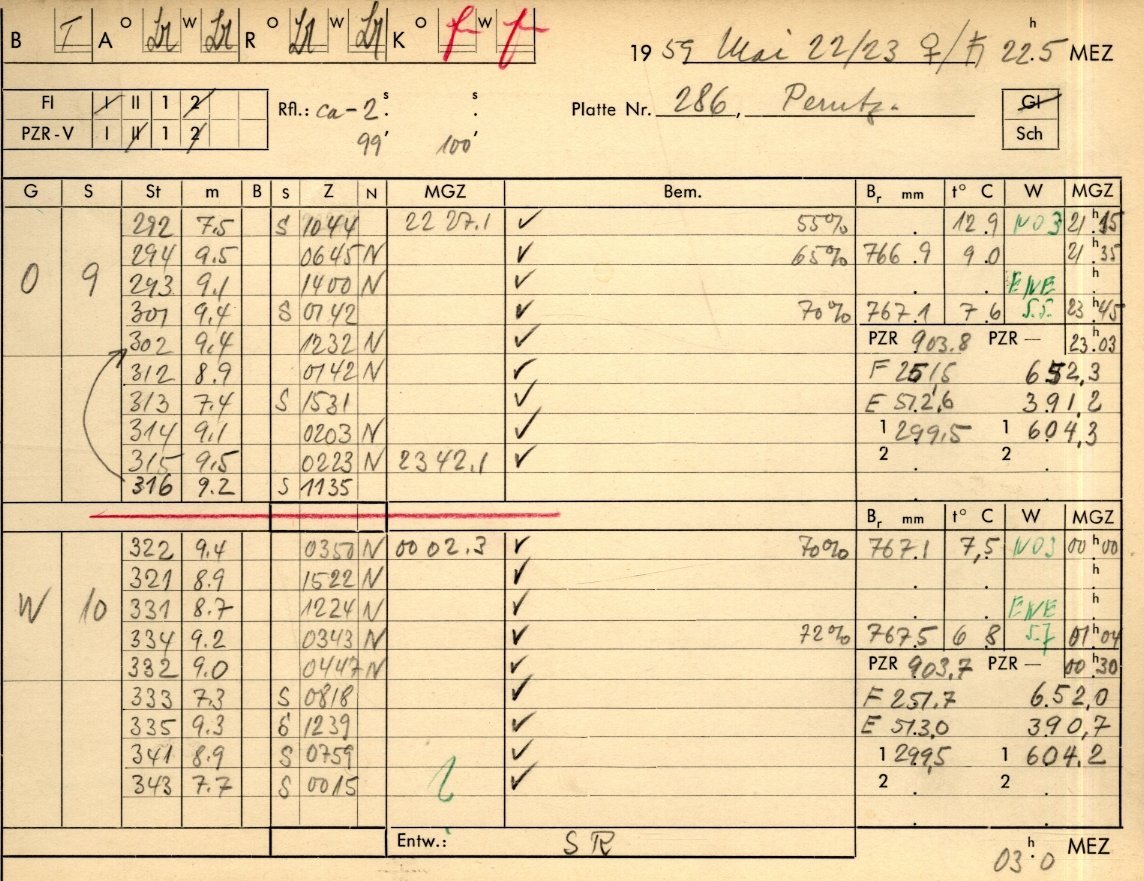 B T A O W R O W K O W
h
19 59 Mai 22/23 ♀/♄ 22.5 MEZ
FI I II 1 2
PZR-V I II 1 2
Rfl.: ca-2.s s
99' 100'
Platte Nr. 286, Perutz.
Gl
Sch
G S St m B S Z N MGZ Bem. Br mm t° C W MGZ
292 7.5 S 1044 22 27.1 ✓ 55% 12.9 NO3 21h15
294 9.5 0645 N ✓ 65% 766.9 9.0 21h35
O 9 293 9.1 1400 N ✓ ENE h
301 9.4 S 0742 ✓ 70% 767.1 7.6 5.5. 23h45
302 9.4 1232 N ✓ PZR 903.8 PZR — 23.03
312 8.9 0742 N ✓ F 251,5 652,3
313 7.4 S 1531 ✓ E 512,6 391,2
314 9.1 0203 N ✓ 1 299,5 1 604,3
315 9.5 0223 N 23 42.1 ✓ 2 . 2 .
316 9.2 S 1135
Br mm t° C W MGZ
322 9.4 0350 N 00 02.3 ✓ 70% 767.1 7,5 NO3 00h00
321 8.9 1522 N ✓ h
W 10 331 8.7 1224 N ✓ ENE h
334 9.2 0343 N ✓ 72% 767.5 6.8 5.7 01h04
332 9.0 0447 N ✓ PZR 903,7 PZR — 00.30
333 7.3 S 0818 ✓ F 251,7 652,0
335 9.3 S 1239 ✓ E 513,0 390,7
341 8.9 S 0759 ✓ 1 299,5 1 604.2
343 7.7 S 0015 ✓ 2 . 2 .
Entw.: SR
03h.0 MEZ